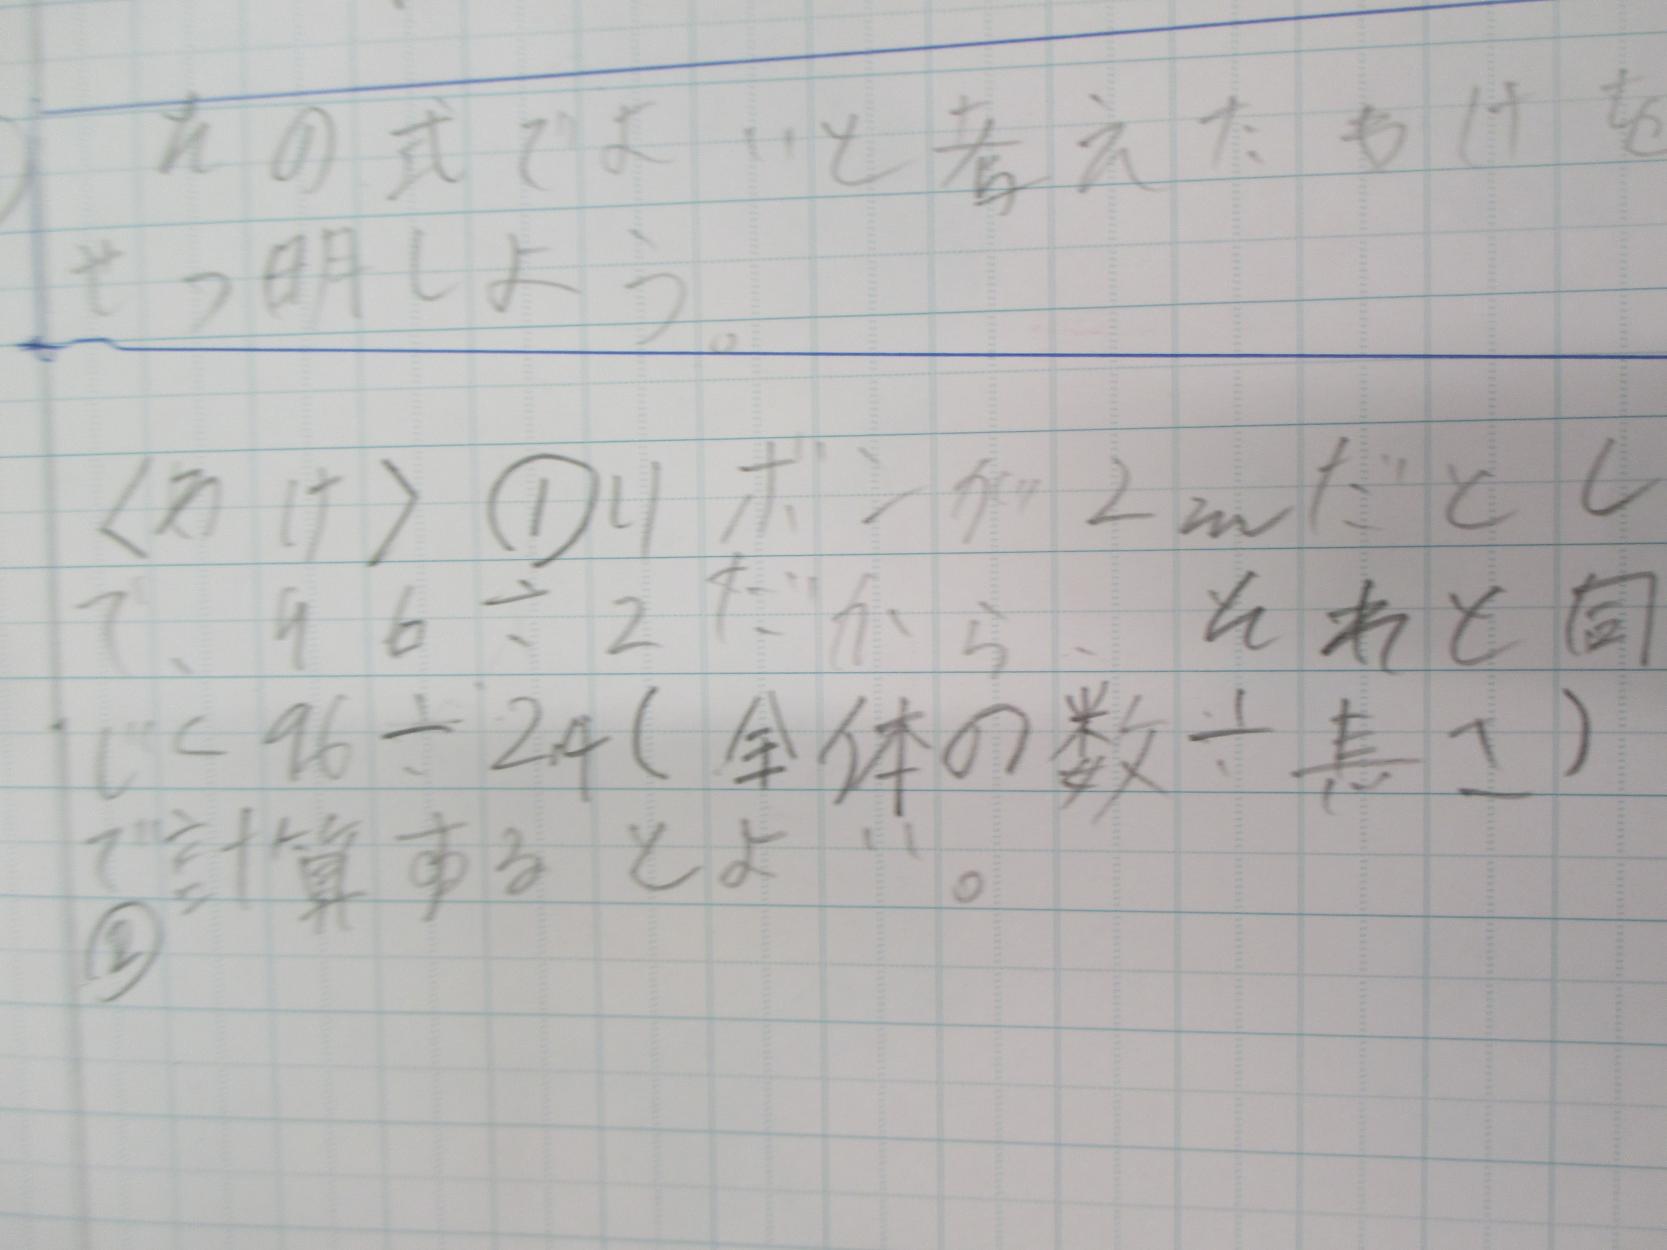 その式でよいと考えたわけを
せつ明しよう。
〈わけ〉①リボンが2mだとし
て、96÷2だから、それと同
じく96÷2.4(全体の数÷長さ)
で計算するとよい。
②